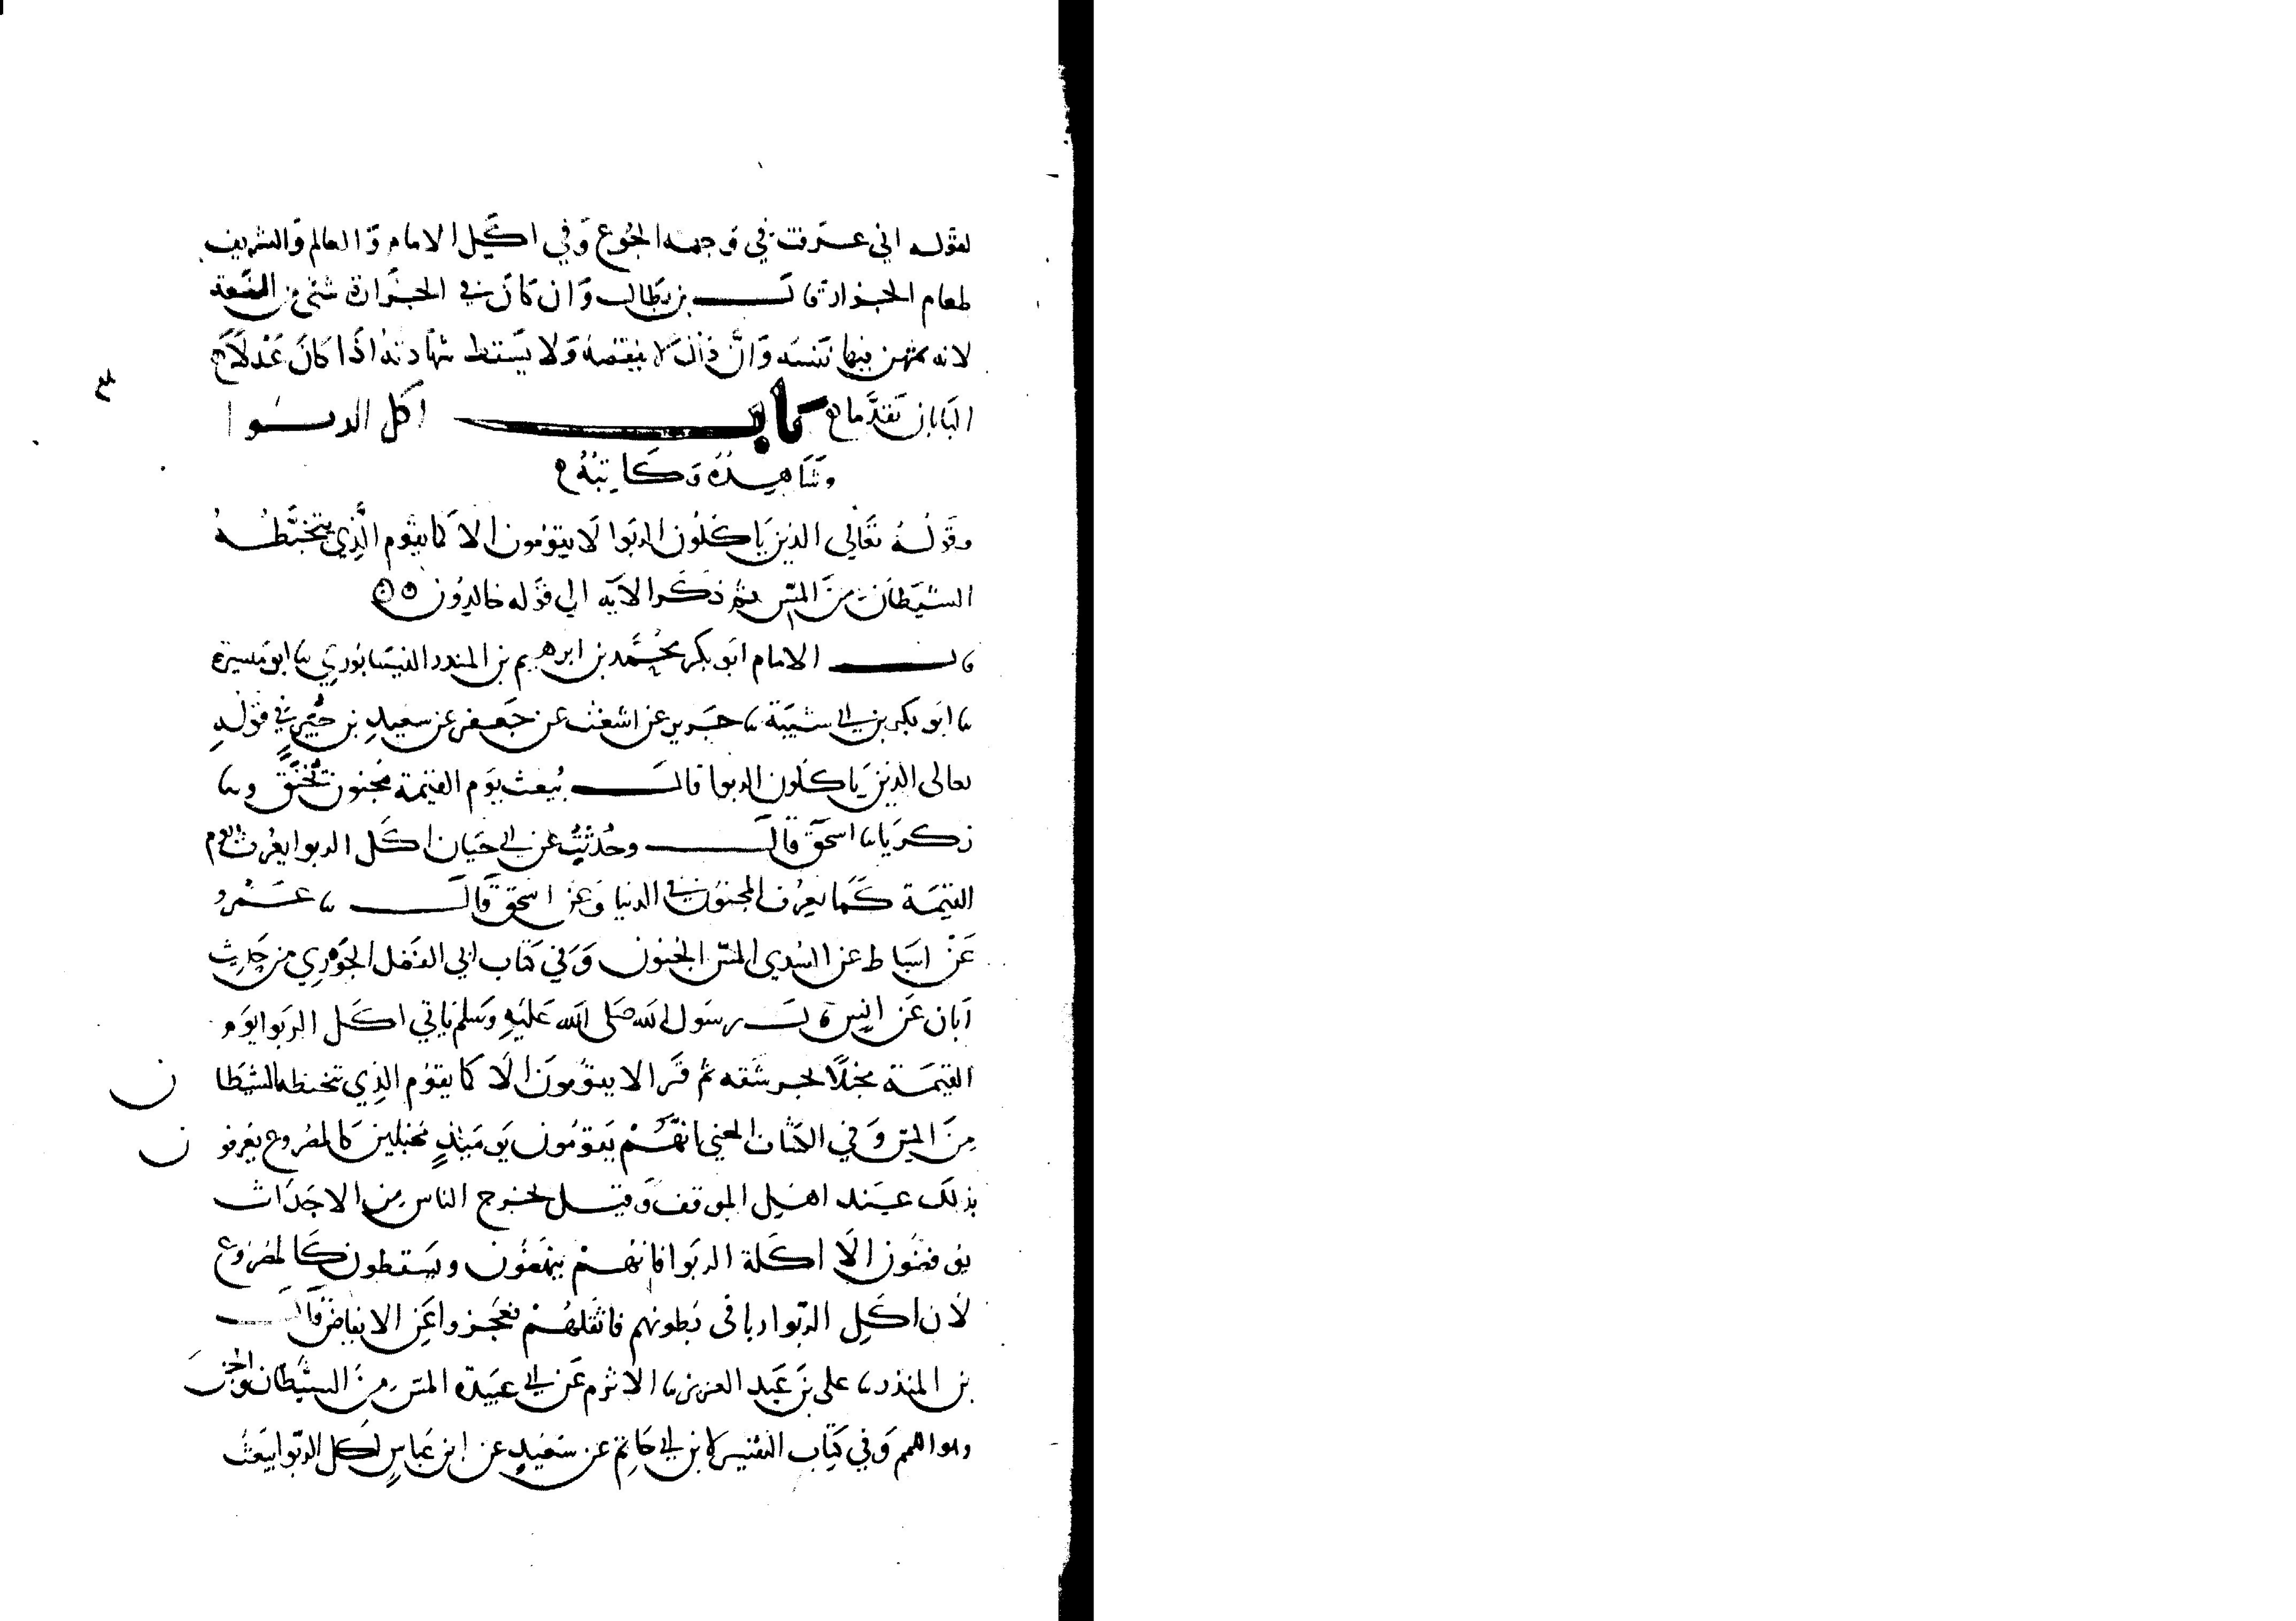 لقوله اني عرفت في وجهه الجوع وفي اكل الامام والعالم والشريف
طعام الجزار قال بن بطال وان كان في الجزارة شئ من الضعة
لانه يمتهن فيها نفسه وان ذلك لا ينقصه ولا يسقط شهادته اذا كان عدلا
البابان تقدما باب اكل الربوا
وشاهده وكاتبه
وقوله تعالي الذين ياكلون الربوا لا يقومون الا كما يقوم الذي يتخبطه
الشيطان من المس ثم ذكر الاية الي قوله خالدون
قال الامام ابو بكر محمد بن ابرهيم بن المنذر النيسابوري ثنا ابو ميسرة
ثنا ابو بكر بن ابي شيبة ثنا جرير عن اشعث عن جعفر عن سعيد بن جبير في قوله
تعالى الذين ياكلون الربوا قال يبعث يوم القيمة مجنون يخنق وثنا
زكريا ثنا اسحق قال وحدثت عن ابي حيان اكل الربوا يعرف يوم
القيمة كما يعرف المجنون في الدنيا وعن اسحق قال ثنا عمرو
عن اسباط عن السدي المس الجنون وفي كتاب ابي الفضل الجوزي من حديث
ابان عن انس قال رسول الله صلى الله عليه وسلم ياتي اكل الربوا يوم
القيمة مخبلا يجر شقه ثم قرا لا يقومون الا كما يقوم الذي تخبطه الشيطان
من المس وفي الكشاف المعني انهم يقومون يوميذ مخبلين كالمصروع يعرفون
بذلك عند اهل الموقف وقيل يخرج الناس من الاجداث
يوفضون الا اكلة الربوا فانهم ينهضون ويسقطون كالمصروع
لان اكل الربوا ربا في بطونهم فاثقلهم فعجزوا عن الايفاض قال
بن المنذر ثنا على بن عبد العزيز ثنا الاثرم عن ابي عبيدة المس من الشيطان والجن
وهو اللمم وفي كتاب التفسير لابن ابي حاتم عن سعيد عن ابن عباس اكل الربوا يبعث